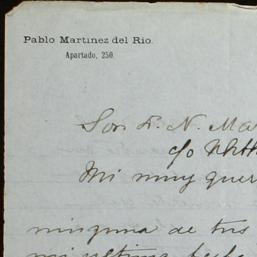 Pablo Martinez del Rio.
Apartado, 250.
Sor. D. N. Ma
c/o
Mi muy quer
ninguna de tus
mi ultima